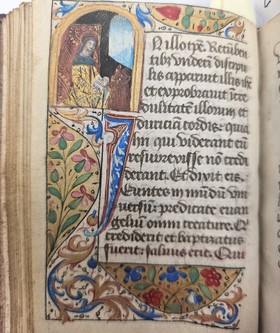 N illo tp̄e. Recūben
tibꝰ vndecī discipu
lis apparuit illis ihs̄
et exprobrauit īcre
dulitatē illorum et
duriciam cordis: quia
hii qui viderant eū
resurrexisse nō credi
derant. Et dixit eis.
Euntes in mūdū vni
uersū: predicate euan
geliū omni creature. Q
crediderit et baptizatus
fuerit: saluus erit. Qui